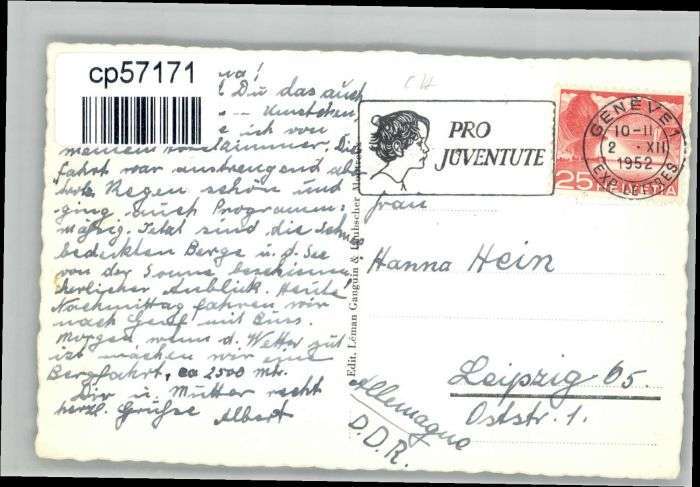 cp57171
Du das auch
ich von
meinem
fahrt war anstrengend
trotz Regen schön und
ging auch Programm=
mäßig. Jetzt sind die
bedeckten Berge u. d. See
von der Sonne beschienen,
herrlicher Anblick. Heute
Nachmittag fahren wir
nach Genf mit Bus.
Morgen wenn d. Wetter gut
ist machen wir eine
Bergfahrt, ca 2500 mtr.
Dir u. Mutter recht
herzl. Grüße Albert
Edit. Léman Ganguin & Laubscher Montreux
CH
PRO
JUVENTUTE
GENÈVE 1
10-11
2 · XII
1952
EXP. LETTRES
25 HELVETIA
Frau
Hanna Hein
Leipzig O5.
Oststr. 1.
Allemagne
D.D.R.